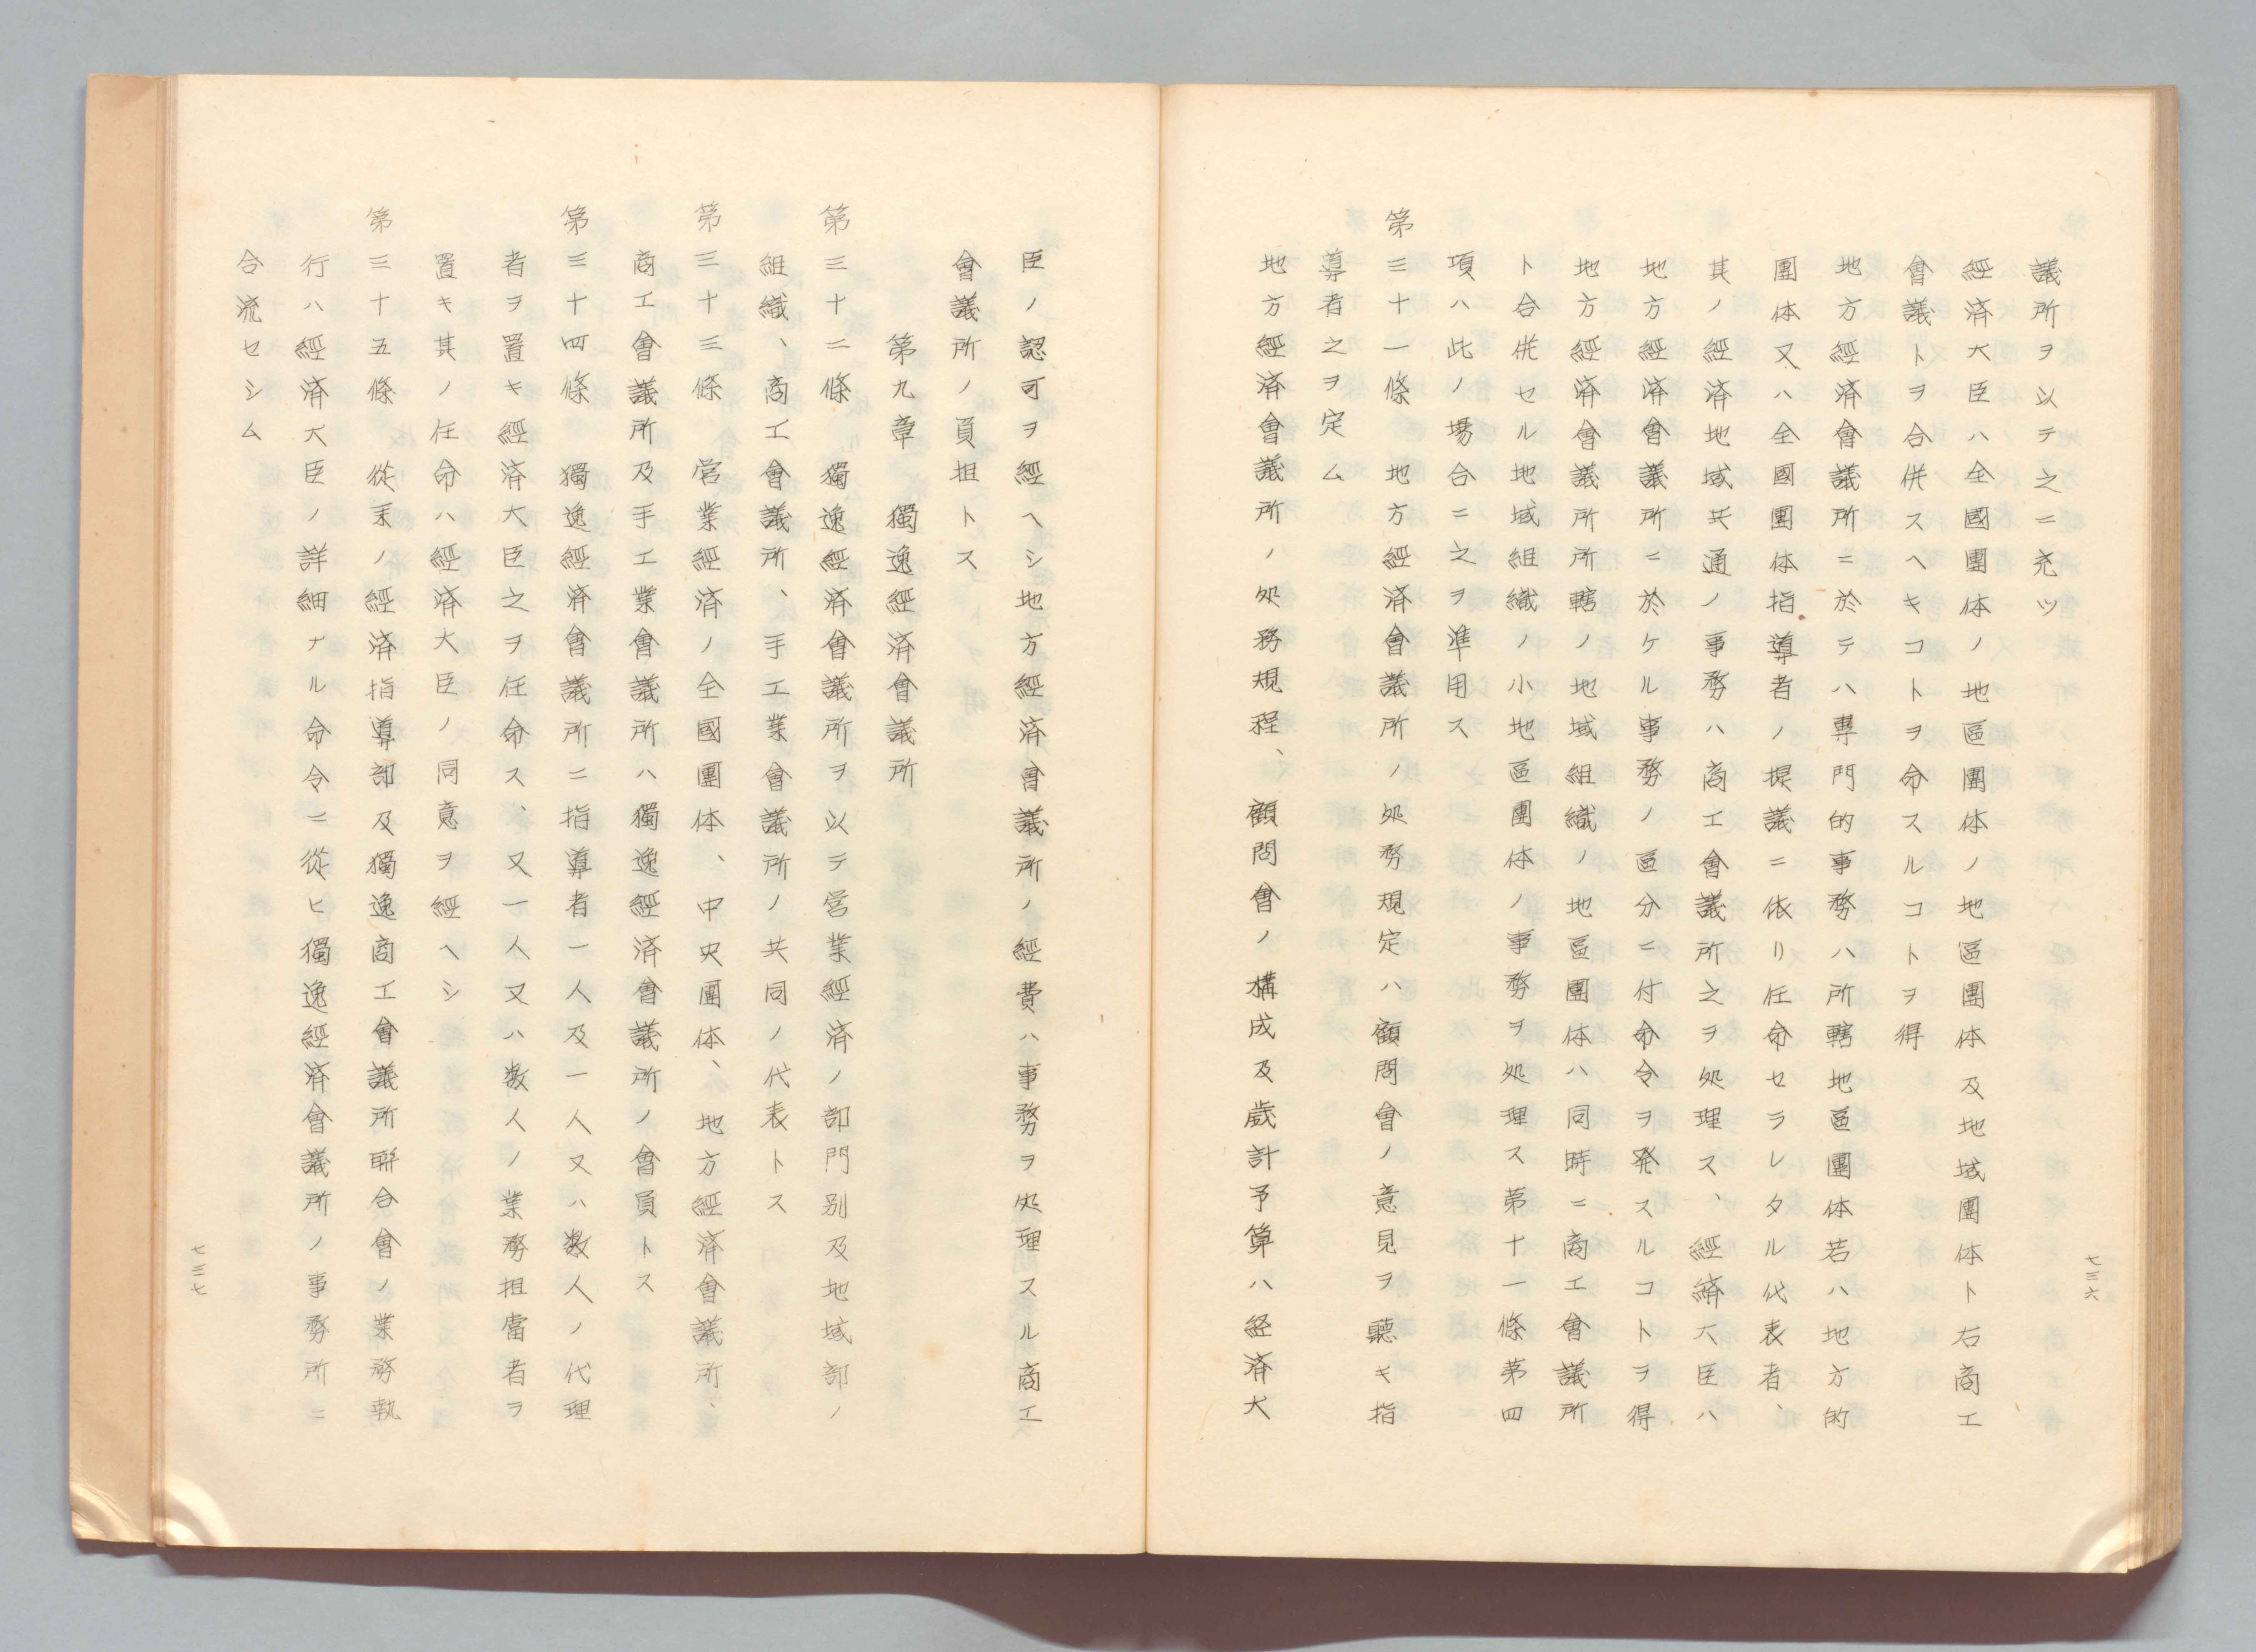 七三六
議所ヲ以テ之ニ充ツ
經済大臣ハ全國團体ノ地區團体ノ地區團体及地域團体ト右商工
會議トヲ合併スヘキコトヲ命スルコトヲ得
地方經済會議所ニ於テハ專門的事務ハ所轄地區團体若ハ地方的
團体又ハ全國團体指導者ノ提議ニ依リ任命セラレタル代表者、
其ノ經済地域共通ノ事務ハ商工會議所之ヲ処理ス、經濟大臣ハ
地方經済會議所ニ於ケル事務ノ區分ニ付命令ヲ発スルコトヲ得
地方經済會議所所轄ノ地域組織ノ地區團体ハ同時ニ商工會議所
ト合併セル地域組織ノ小地區團体ノ事務ヲ処理ス第十一條第四
項ハ此ノ場合ニ之ヲ準用ス
第三十一條　地方經済會議所ノ処務規定ハ顧問會ノ意見ヲ聽キ指
導者之ヲ定ム
地方經済會議所ノ処務規程、顧問會ノ構成及歳計予算ハ経済大
臣ノ認可ヲ經ヘシ地方經済會議所ノ經費ハ事務ヲ処理スル商工
會議所ノ負担トス
第九章　獨逸經済會議所
第三十二條　獨逸經済會議所ヲ以テ営業經済ノ部門別及地域部ノ
組織、商工會議所、手工業會議所ノ共同ノ代表トス
第三十三條　営業經済ノ全國團体、中央團体、地方經済會議所、
商工會議所及手工業會議所ハ獨逸經済會議所ノ會員トス
第三十四條　獨逸經済會議所ニ指導者一人及一人又ハ数人ノ代理
者ヲ置キ經済大臣之ヲ任命ス、又一人又ハ数人ノ業務担當者ヲ
置キ其ノ任命ハ經済大臣ノ同意ヲ經ヘシ
第三十五條　從来ノ經済指導部及獨逸商工會議所聯合會ノ業務執
行ハ經済大臣ノ詳細ナル命令ニ從ヒ獨逸經済會議所ノ事務所ニ
合流セシム
七三七